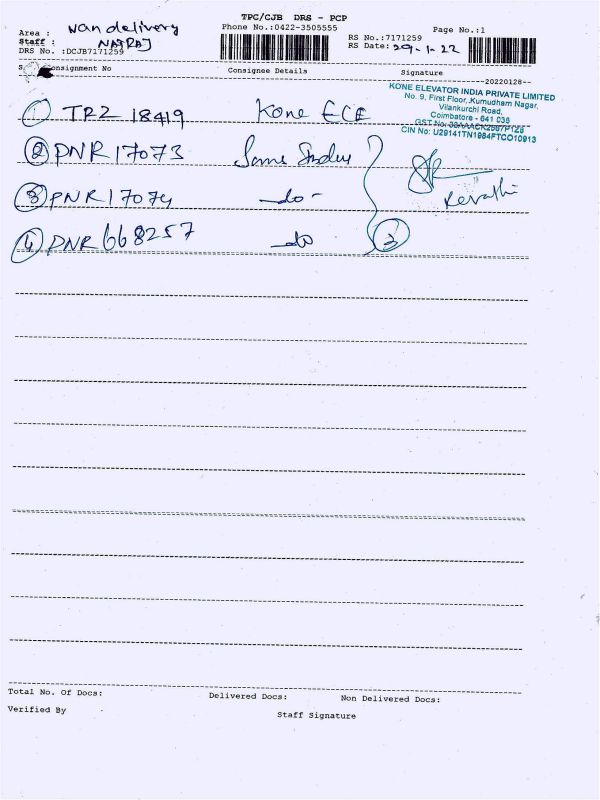 TPC/CJB DRS - PCP
Phone No.:0422-3505555 Page No.:1
Area : Van delivery
Staff : NATRAJ
RS No.:7171259
RS Date: 29-1-22
DRS No. :DCJB7171259
Consignment No Consignee Details Signature
--20220128--
KONE ELEVATOR INDIA PRIVATE LIMITED
No. 9, First Floor, Kumudham Nagar,
Vilankurchi Road,
Coimbatore - 641 035
GST No:
CIN No: U29141TN1984FTC010913
1 TRZ 18419 Kone ECE
2 PNR 17073
3 PNR 17074 -do-
4 PNR 668257 -do 3
Revathi
Total No. Of Docs: Delivered Docs: Non Delivered Docs:
Verified By
Staff Signature